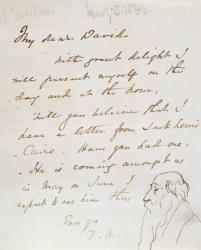 My dear David
With great delight I
will present myself on the
day and at the hour,
Will you believe that I
have a letter from Jack Lewis
Cairo. Have you had one.
He is coming amongst us
in May or June I
expect to see him then